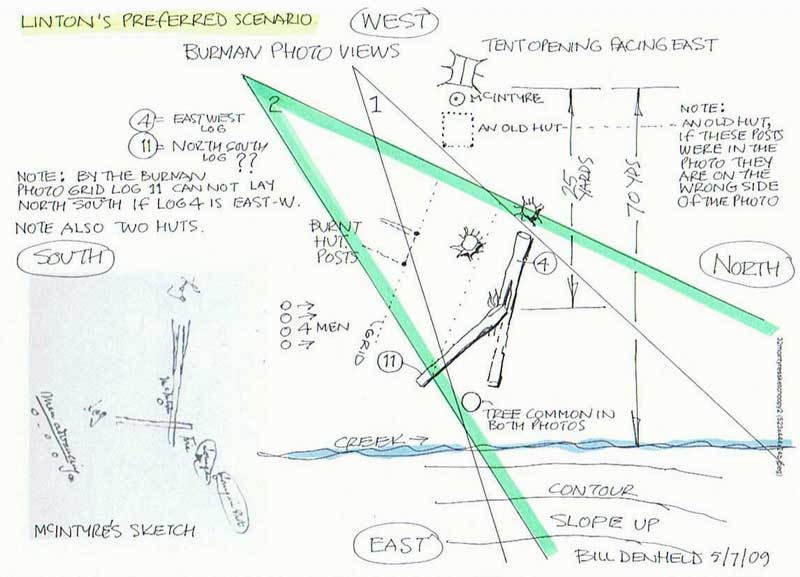 LINTON'S PREFERRED SCENARIO
WEST
BURMAN PHOTO VIEWS
TENT OPENING FACING EAST
2
1
MCINTYRE
④ = EAST WEST
LOG
AN OLD HUT
NOTE:
AN OLD HUT,
IF THESE POSTS
WERE IN THE
PHOTO THEY
ARE ON THE
WRONG SIDE
OF THE PHOTO
⑪ = NORTH SOUTH
LOG ??
NOTE: BY THE BURMAN
PHOTO GRID LOG 11 CAN NOT LAY
NORTH SOUTH IF LOG 4 IS EAST-W.
NOTE ALSO TWO HUTS.
25
YARDS
70 YDS
BURNT
HUT
POSTS
SOUTH
NORTH
4
4 MEN
GRID
11
TREE COMMON IN
BOTH PHOTOS
Log
Log
Men advancing
Fire
CREEK →
CONTOUR
SLOPE UP
MCINTYRE'S SKETCH
EAST
BILL DENHELD 5/7/09